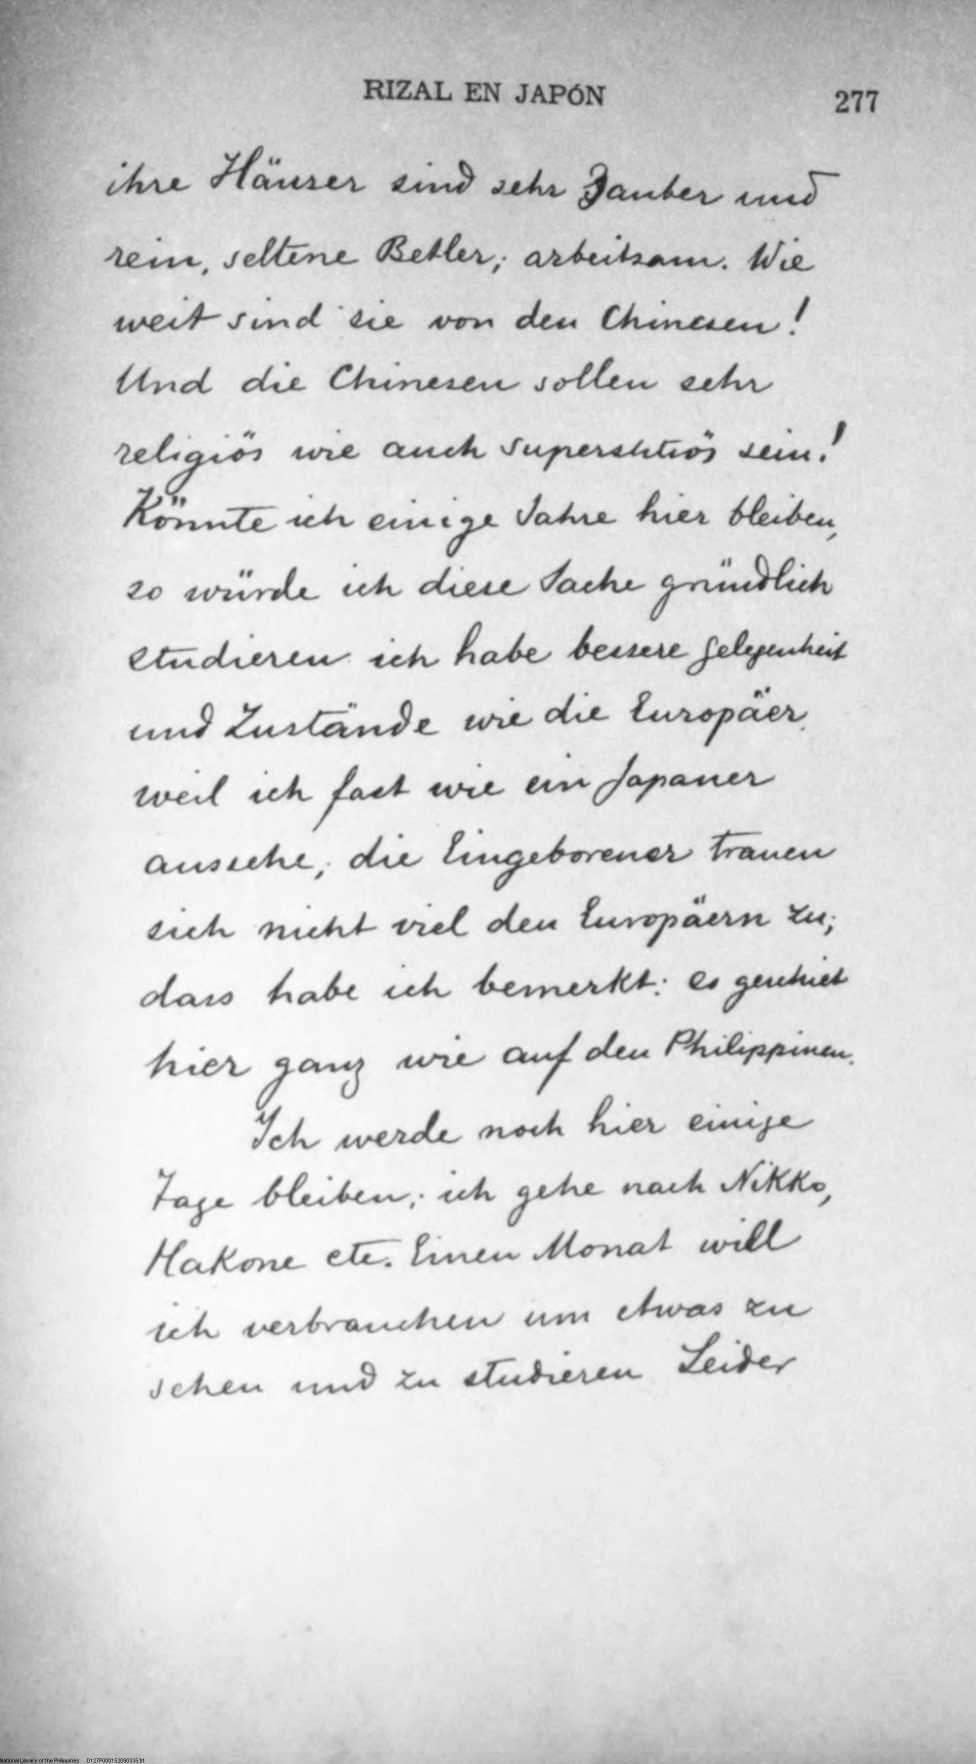 RIZAL EN JAPÓN 277
ihre Häuser sind sehr sauber und
rein, seltene Betler; arbeitsam. Wie
weit sind sie von den Chinesen!
Und die Chinesen sollen sehr
religiös wie auch superstitiös sein!
Könnte ich einige Jahre hier bleiben,
so würde ich diese Sache gründlich
studieren ich habe bessere Gelegenheit
und Zustände wie die Europäer,
weil ich fast wie ein Japaner
aussehe; die Eingeborener trauen
sich nicht viel den Europäern zu;
dass habe ich bemerkt: es geschiet
hier ganz wie auf den Philippinen.
Ich werde noch hier einige
Tage bleiben; ich gehe nach Nikko,
Hakone etc. Einen Monat will
ich verbrauchen um etwas zu
sehen und zu studieren Leider
National Library of the Philippines